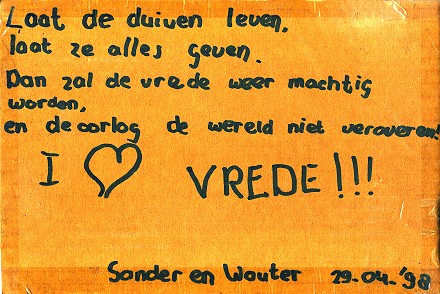 Laat de duiven leven,
laat ze alles geven.
Dan zal de vrede weer machtig
worden,
en de oorlog de wereld niet veroveren!
I ♡ VREDE!!!
Sander en Wouter 29-04-'98